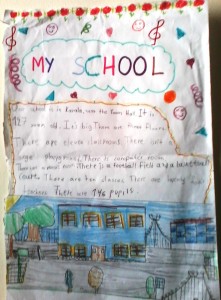 MY SCHOOL
Our school is in the town It is
127 years old. It is big. There are three floors.
There are eleven classrooms. There are
large There is computer room.
There is a music room. There is a football field and a basketball
court. There are ten classes. There are twenty
There are 196 pupils.